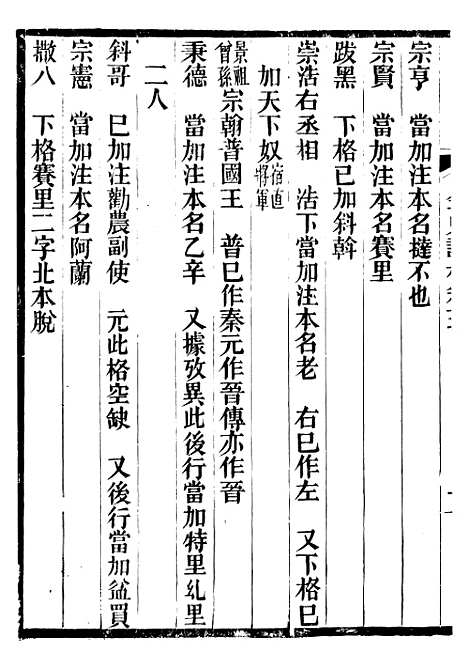 宗亨　當加注本名撻不也
宗賢　當加注本名賽里
跋黑　下格已加斜斡
崇浩右丞相　浩下當加注本名老　右巳作左　又下格巳
加天下奴宿直將軍
景祖曾孫宗翰晉國王　晉巳作秦元作晉傳亦作晉
秉德　當加注本名乙辛　又據攷異此後行當加特里乣里
二人
斜哥　巳加注勸農副使　元此格空缺　又後行當加盆買
宗憲　當加注本名阿蘭
撒八　下格賽里二字北本脫